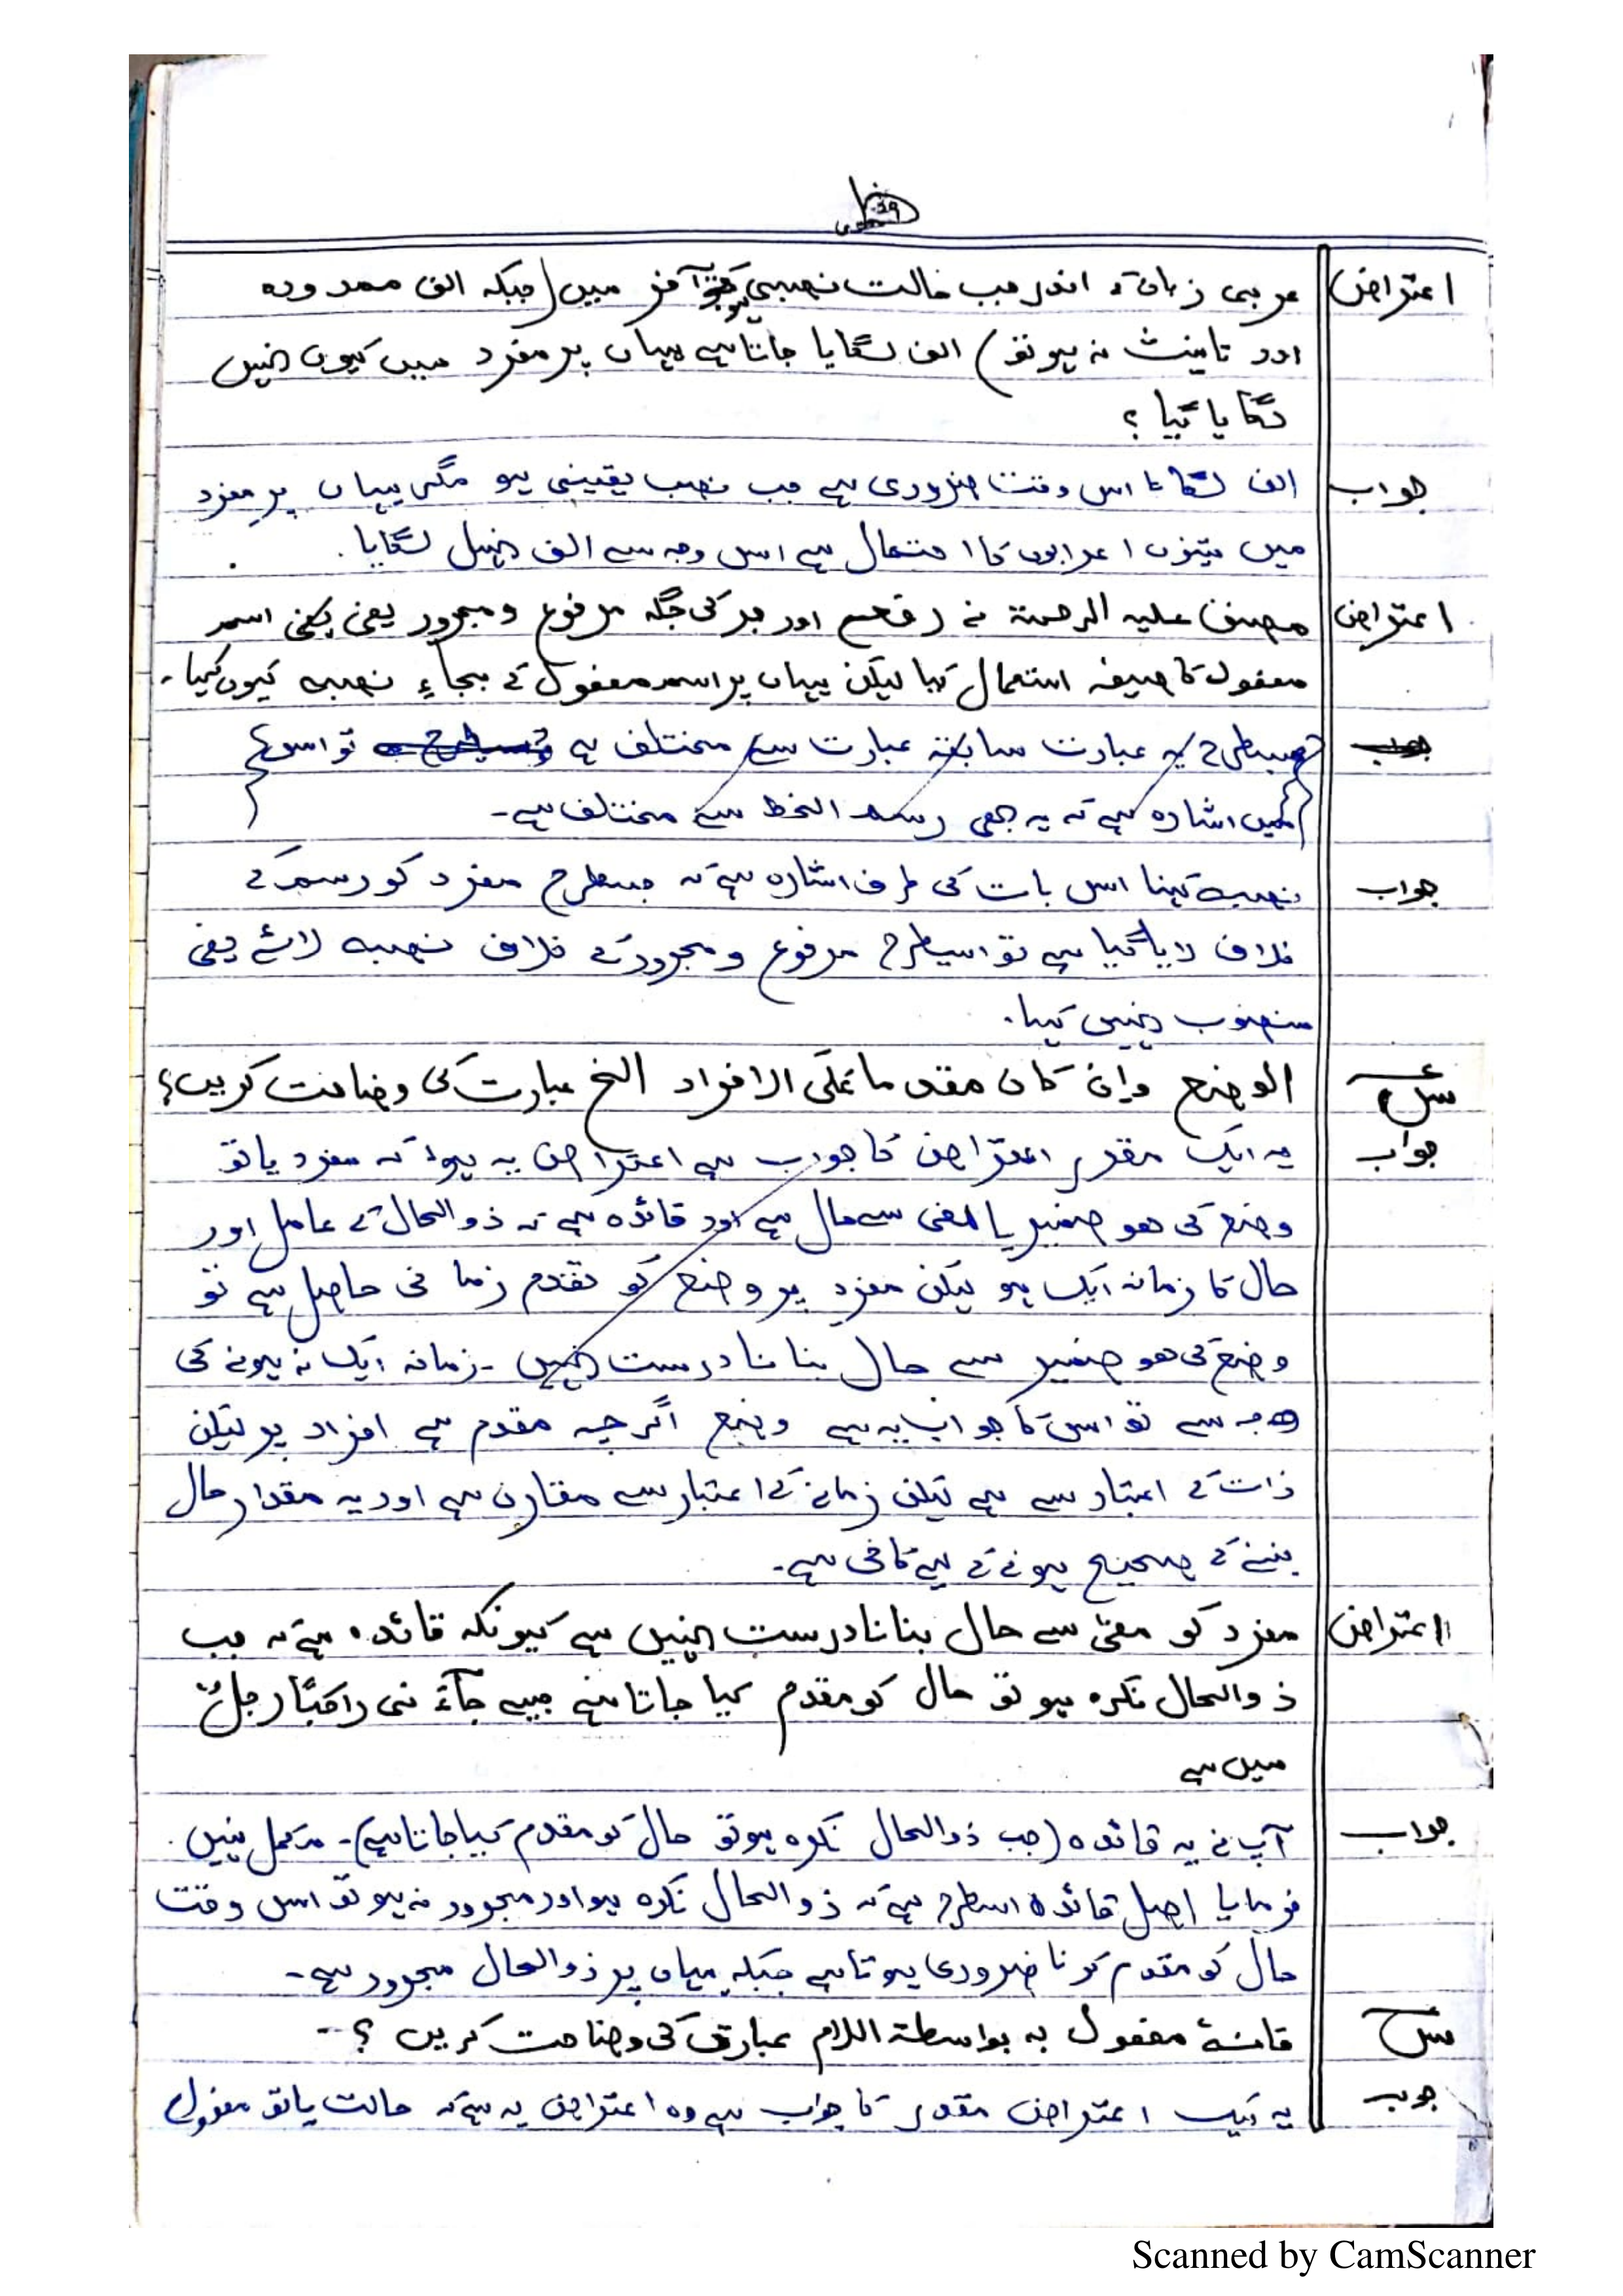 اعتراض عربی زبان کے اندر جب حالت نصبی ہو تو آخر میں (جبکہ الف ممدودہ
اور تانیث نہ ہو تو) الف لگایا جاتا ہے یہاں پر مفرد میں کیوں نہیں
لگایا گیا ؟
جواب الف لگانا اس وقت ضروری ہے جب نصب یقینی ہو مگر یہاں پر مفرد
میں تینوں اعرابوں کا احتمال ہے اس وجہ سے الف نہیں لگایا۔
اعتراض مصنف علیہ الرحمۃ نے رفع اور جر کی جگہ مرفوع و مجرور یعنی اسم
مفعول کا صیغہ استعمال کیا لیکن یہاں پر اسم مفعول کے بجاءِ نصبہ کیوں کہا۔
جسطرح یہ عبارت سابقہ عبارت سے مختلف ہے تو اسمیں
اشارہ ہے کہ یہ بھی رسم الخط سے مختلف ہے۔
جواب نصبہ کہنا اس بات کی طرف اشارہ ہے کہ جسطرح مفرد کو رسم کے
خلاف لایا گیا ہے تو اسیطرح مرفوع و مجرور کے خلاف نصبہ لائے یعنی
منصوب نہیں کہا۔
الوضع وان کان مقدما علی الافراد الخ عبارت کی وضاحت کریں؟
جواب یہ ایک مقدر اعتراض کا جواب ہے اعتراض یہ ہوا کہ مفرد یا تو
وضع کی ھو ضمیر یا المعنی سے حال ہے اور قائدہ ہے کہ ذوالحال کے عامل اور
حال کا زمانہ ایک ہو لیکن مفرد پر وضع کو تقدم زمانی حاصل ہے تو
وضع کی ھو ضمیر سے حال بنانا درست نہیں ۔ زمانہ ایک نہ ہونے کی
وجہ سے تو اس کا جواب یہ ہے وضع اگرچہ مقدم ہے افراد پر لیکن
ذات کے اعتبار سے ہے لیکن زمانے کے اعتبار سے مقارن ہے اور یہ مقدار حال
بننے کے صحیح ہونے کے لیے کافی ہے۔
اعتراض مفرد کو معنی سے حال بنانا درست نہیں ہے کیونکہ قائدہ ہے کہ جب
ذوالحال نکرہ ہو تو حال کو مقدم کیا جاتا ہے جیسے جآءَ نی راکبًا رجلٌ
میں ہے
جواب آپ نے یہ قائدہ (جب ذوالحال نکرہ ہو تو حال کو مقدم کیا جاتا ہے)۔ مکمل نہیں
فرمایا اصل قائدہ اسطرح ہے کہ ذوالحال نکرہ ہو اور مجرور نہ ہو تو اس وقت
حال کو مقدم کرنا ضروری ہوتا ہے جبکہ یہاں پر ذوالحال مجرور ہے۔
فانہ مفعول بہ بواسطۃ اللام عبارت کی وضاحت کریں ؟
جواب یہ ایک اعتراض مقدر کا جواب ہے وہ اعتراض یہ ہے کہ حالت یا تو مفعول
Scanned by CamScanner